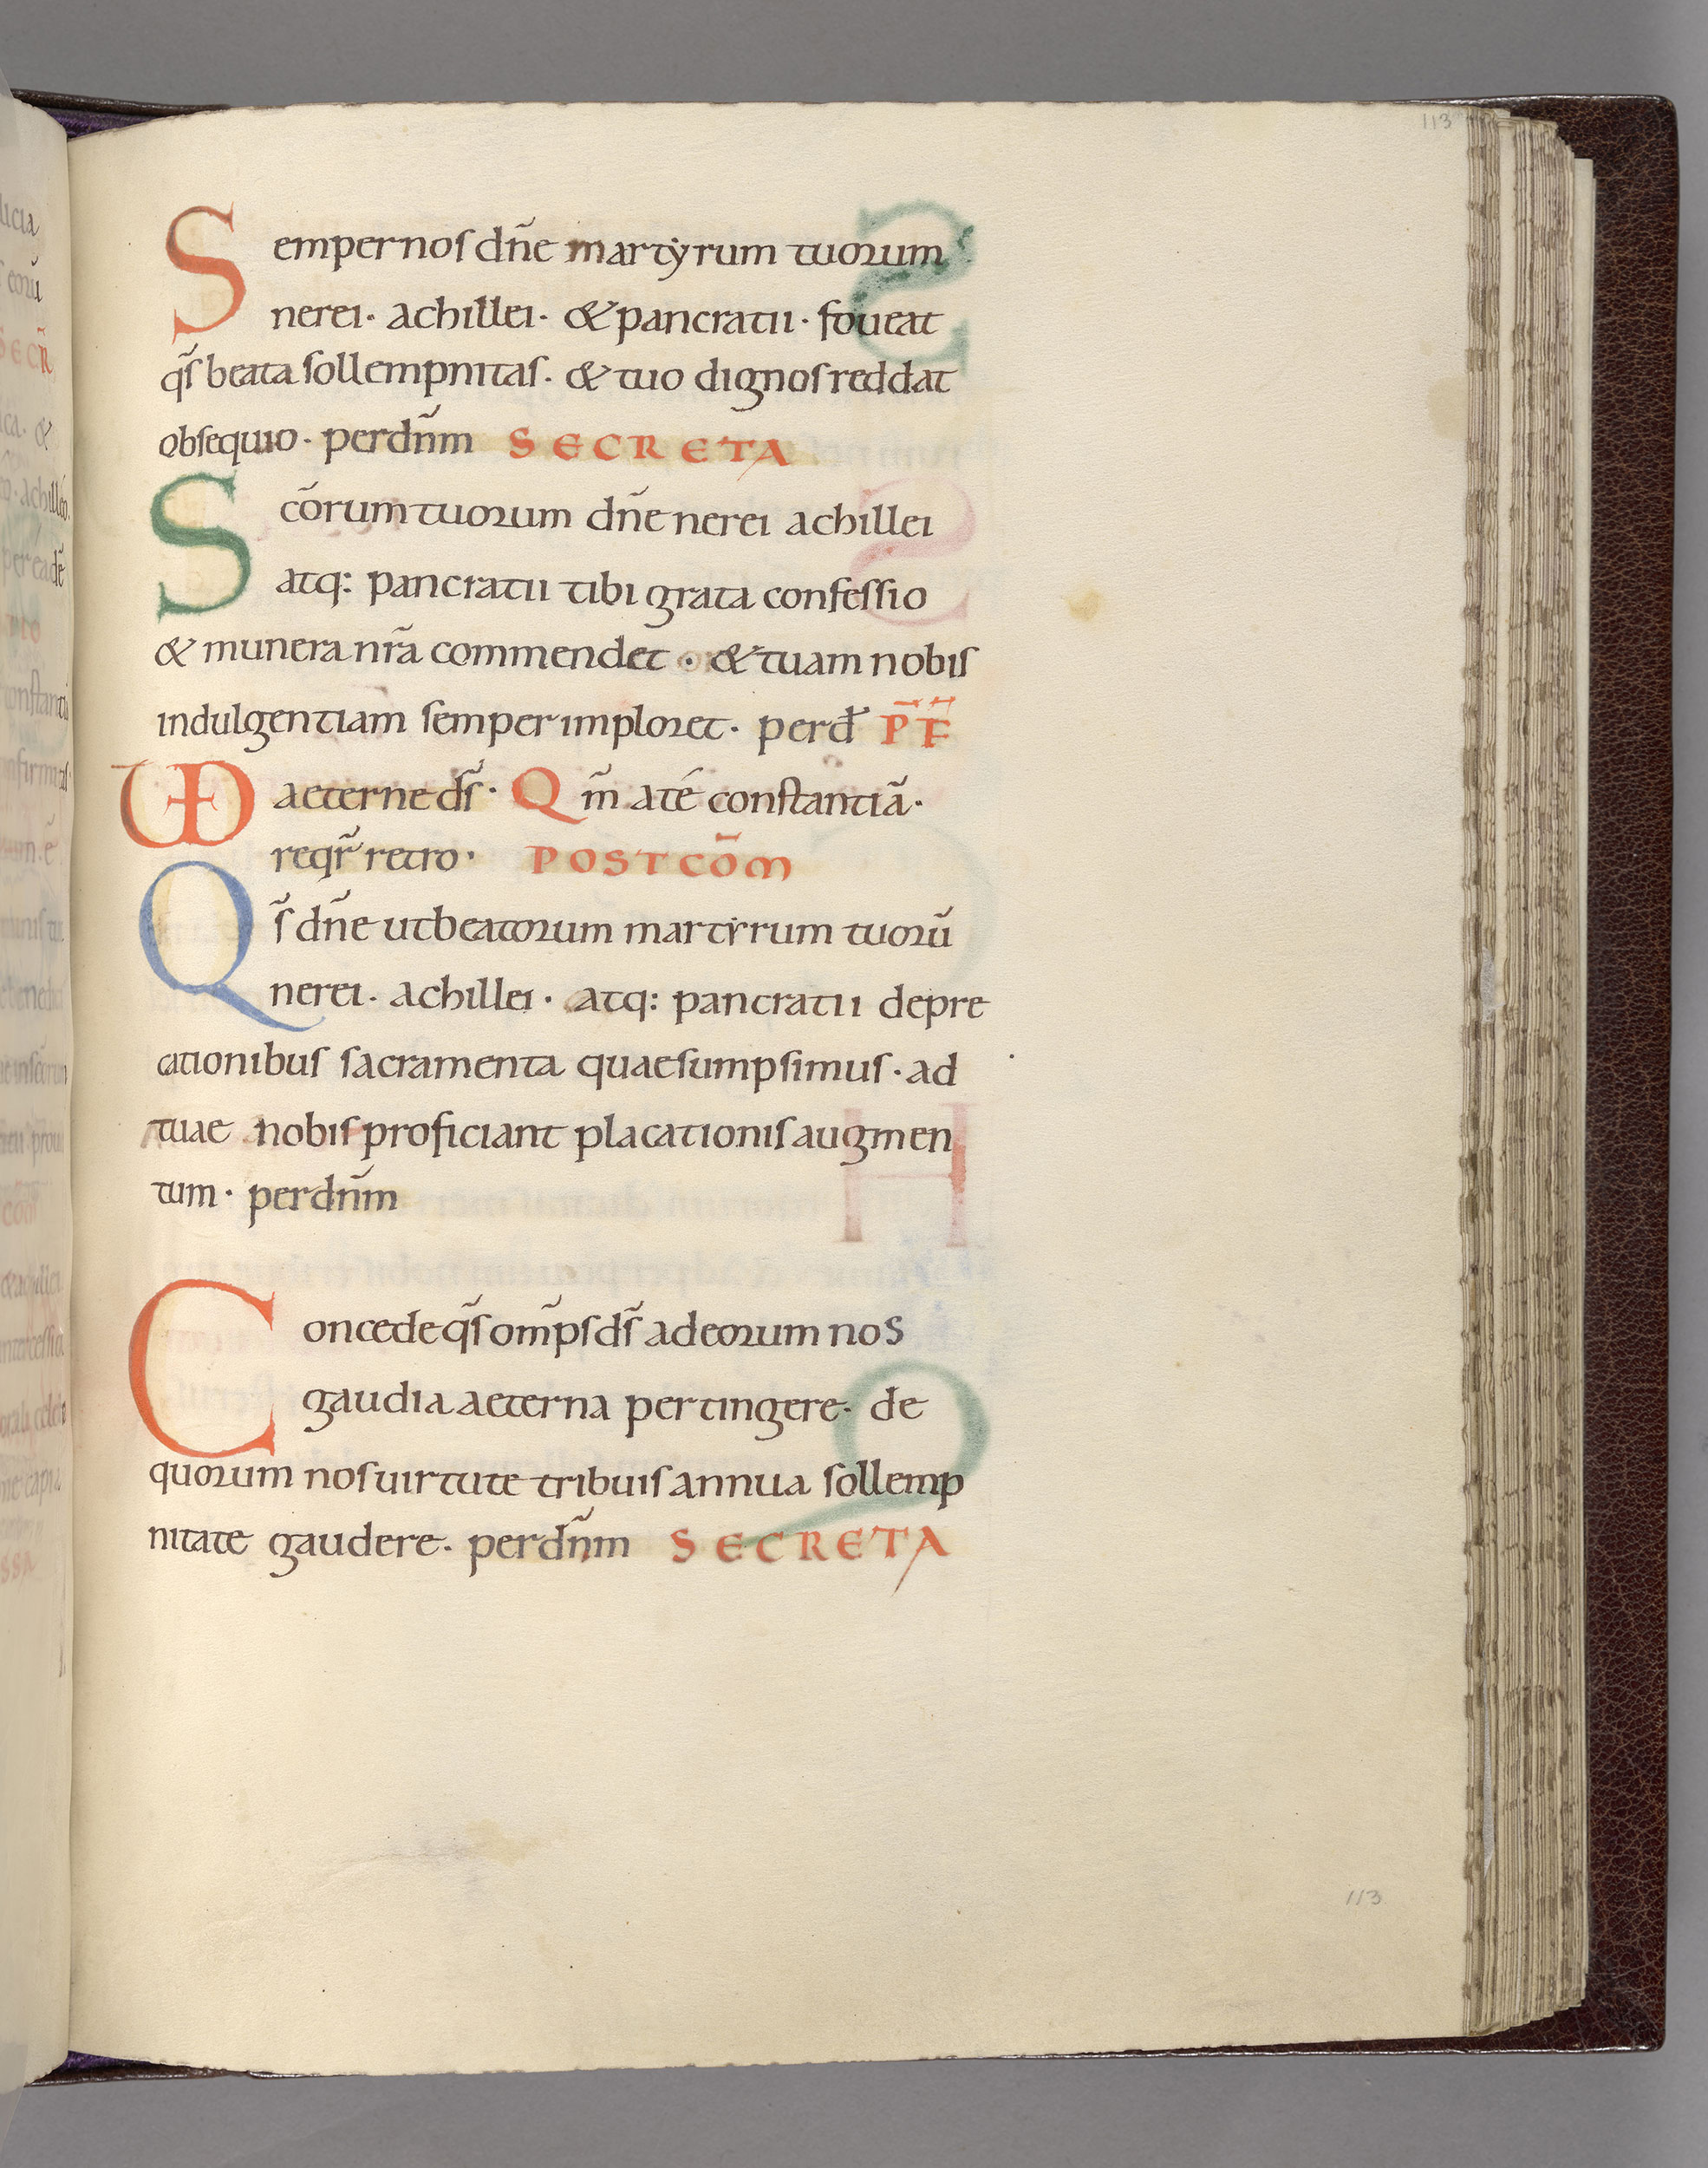 113
Semper nos dñe martẏrum tuorum
nerei · achillei · & pancratii · foueat
q̃s beata sollempnitas · & tuo dignos reddat
obsequio · per dñm SECRETA
Scõrum tuorum dñe nerei achillei
atq: pancratii tibi grata confessio
& munera nr̃a commendet · & tuam nobis
indulgentiam semper imploret · per d̃ P̄F̄
VD aeterne ds̃ · Qm̃ a té constantiã ·
reqr̃ retro · POST COM̃
Qs̃ dñe ut beatorum martẏrum tuorũ
nerei · achillei · atq: pancratii depre
cationibus sacramenta quae sumpsimus · ad
tuae nobis proficiant placationis augmen
tum · per dñm
Concede q̃s omp̃s ds̃ ad eorum nos
gaudia aeterna pertingere · de
quorum nos uirtute tribuis annua sollemp
nitate gaudere · per dñm SECRETA
113